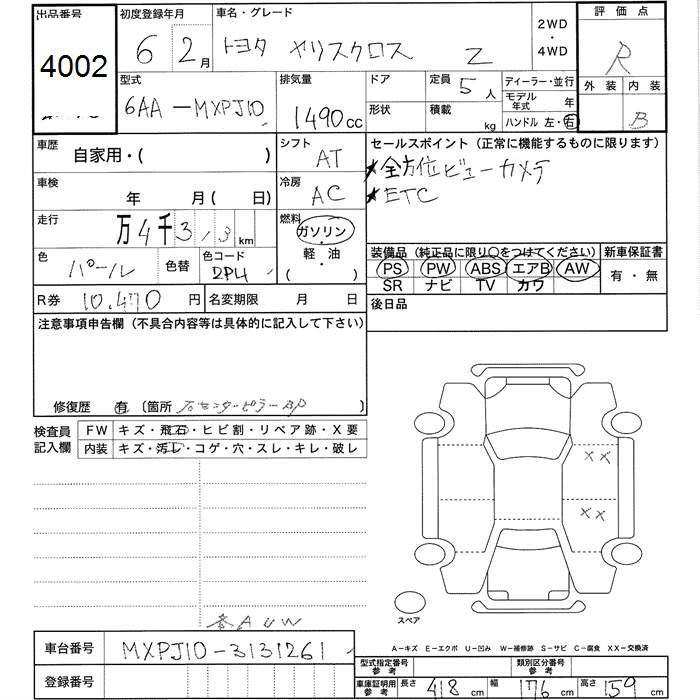 出品番号 初度登録年月 車名・グレード 2WD・4WD 評価点
4002 6 2月 トヨタ ヤリスクロス Z R
型式 排気量 ドア 定員 5人 ディーラー・並行 外装 内装
6AA-MXPJ10 1490cc 形状 積載 kg モデル年式 年 B
ハンドル 左・右
車歴 自家用・( ) シフト AT セールスポイント(正常に機能するものに限ります)
★全方位ビューカメラ
車検 年 月( 日) 冷房 AC ★ETC
走行 万4千313km 燃料 ガソリン・軽・油・( )
色 パール 色替 色コード 2PU 装備品(純正品に限り○をつけてください) 新車保証書
PS PW ABS エアB AW 有・無
SR ナビ TV カワ
R券 10,470円 名変期限 月 日 後日品
注意事項申告欄(不具合内容等は具体的に記入して下さい)
修復歴 有 〔箇所 〕
検査員記入欄 FW キズ・飛石・ヒビ割・リペア跡・X要
内装 キズ・汚レ・コゲ・穴・スレ・キレ・破レ
XX
XX
AUW
スペア
A-キズ E-エクボ U-凹み W-補修跡 S-サビ C-腐食 XX-交換済
車台番号 MXPJ10-3131261
登録番号 型式指定番号 参考 類別区分番号 参考
車庫証明用 参考 長さ 418cm 幅 176cm 高さ 159cm